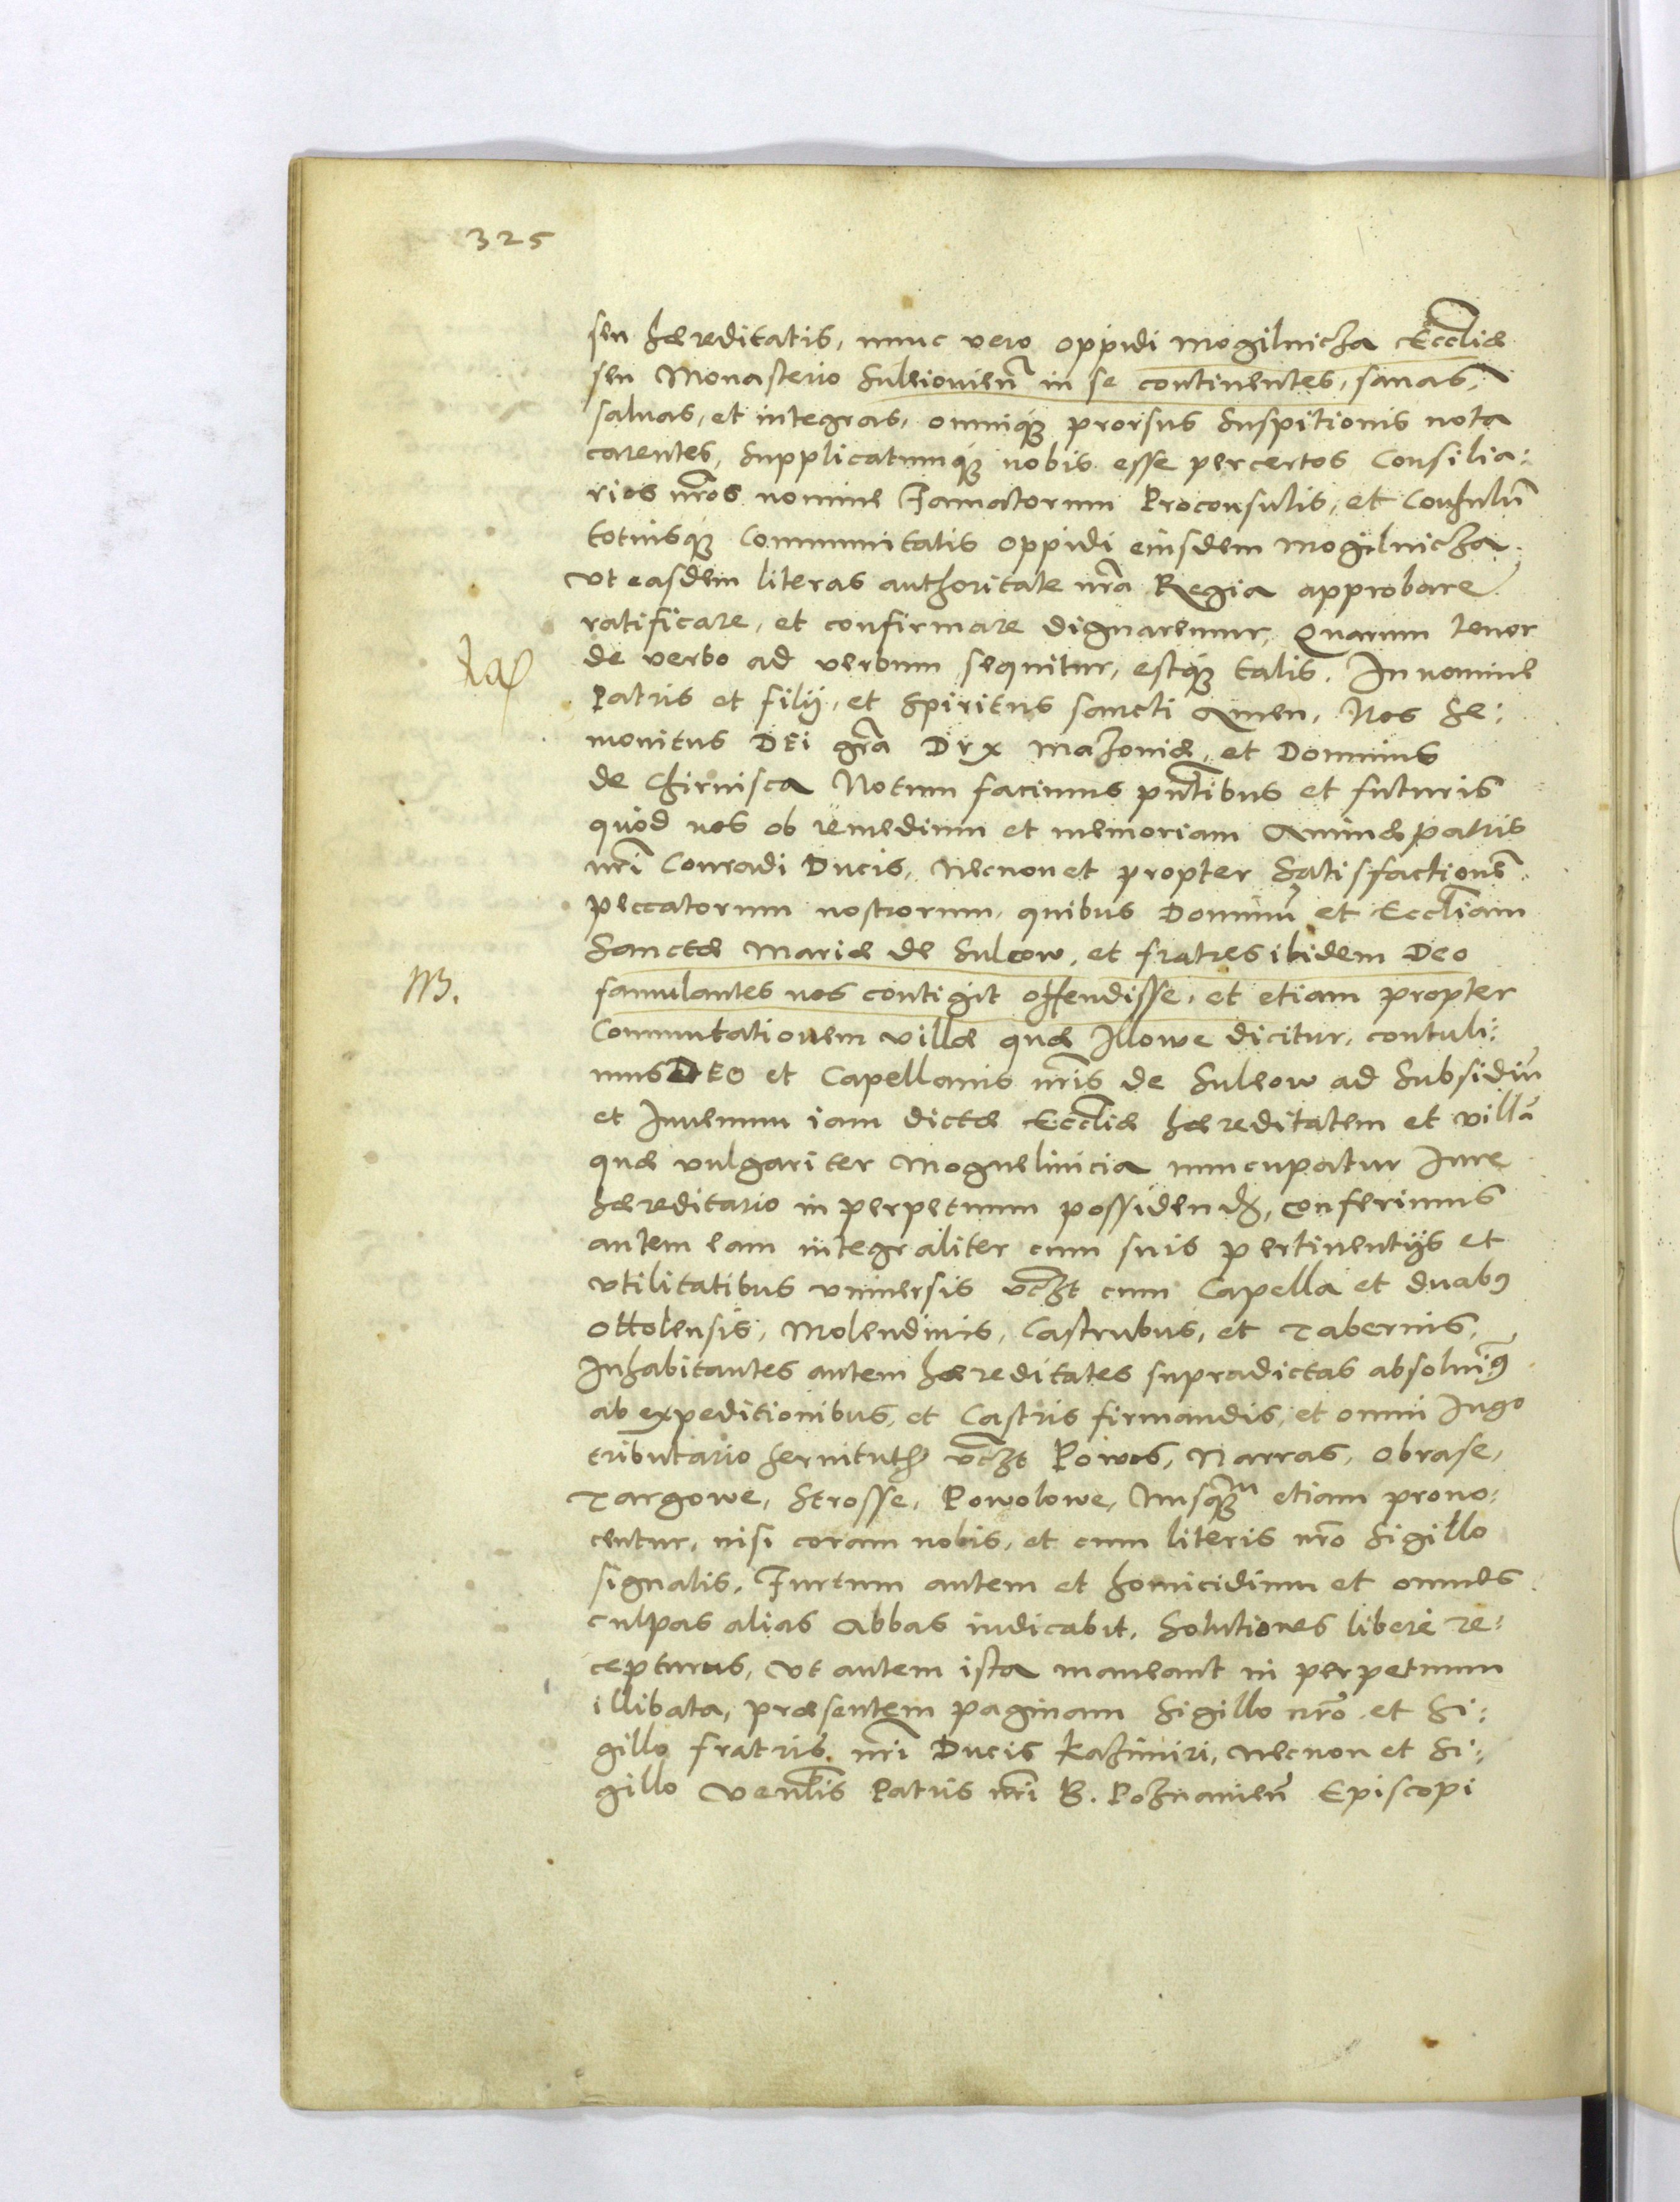 325
seu hæreditatis, nunc vero oppidi Mogilnicza Eccliæ
seu Monasterio Suleiovien̄ in se continentes, sanas,
saluas, et integras, omniq́ue prorsus Suspitionis nota
carentes, Supplicatumq́ue nobis esse per certos Consilia:
rios nr̄os nomine Famatorum Proconsulis, et Consulum̄
totiusq́ue Communitatis oppidi eiusdem Mogilnicza,
Vt easdem literas authoritate nr̄a Regia approbare
ratificare, et confirmare dignaremur, Quarum tenor
de verbo ad verbum sequitur, estq́ue talis. In nomine
Patris et filij, et Spiritus sancti Amen, Nos Se:
monitus DEi gr̄a Dvx Mazoniæ, et Dominus
de Chirnisca Notum facimus pn̄tibus et futuris
quòd nos ob remedium et memoriam Animæ patris
nr̄i Conradi Ducis, Necnon et propter Satisfactionē
peccatorum nostrorum, quibus Dominū et Eccl̄iam
Sanctæ Mariæ de Suleow, et fratres ibidem Deo
NB.
famulantes nos contigit offendisse, et etiam propter
Commutationem villæ quæ Illowe dicitur, contuli:
mus DEO et Capellanis nr̄is de Suleow ad Subsidiū
et Iuuamen iam dictæ Eccl̄iæ hæreditatem et villā
quæ vulgariter Moguelinicia nuncupatur Iure
hæreditario in perpetuum possidend̄, conferimus
autem eam integraliter cum suis pertinentijs et
vtilitatibus vniuersis vczt cum Capella et duab9
Ottolensis, Molendinis, Castrubus, et Tabernis,
Inhabitantes autem hæreditates supradictas absoluim9
ab expeditionibus, et Castris firmandis, et omni Iugo
tributario Seruituth vczt Powos, Narras, Obrase,
Targowe, Strosse, Powolowe, Nusq́uam etiam prouo:
centur, nisi coram nobis, et cum literis nr̄o Sigillo
signatis, Furtum autem et homicidium et omnes
culpas alias Abbas iudicabit, Solutiones liberè re:
cepturus, Vt autem ista maneant in perpetuum
illibata, præsentem paginam Sigillo nr̄o et Si:
gillo fratris nr̄i Ducis Kazimiri, necnon et Si:
gillo Ven̄lis Patris nr̄i B. Poznanien̄ Episcopi